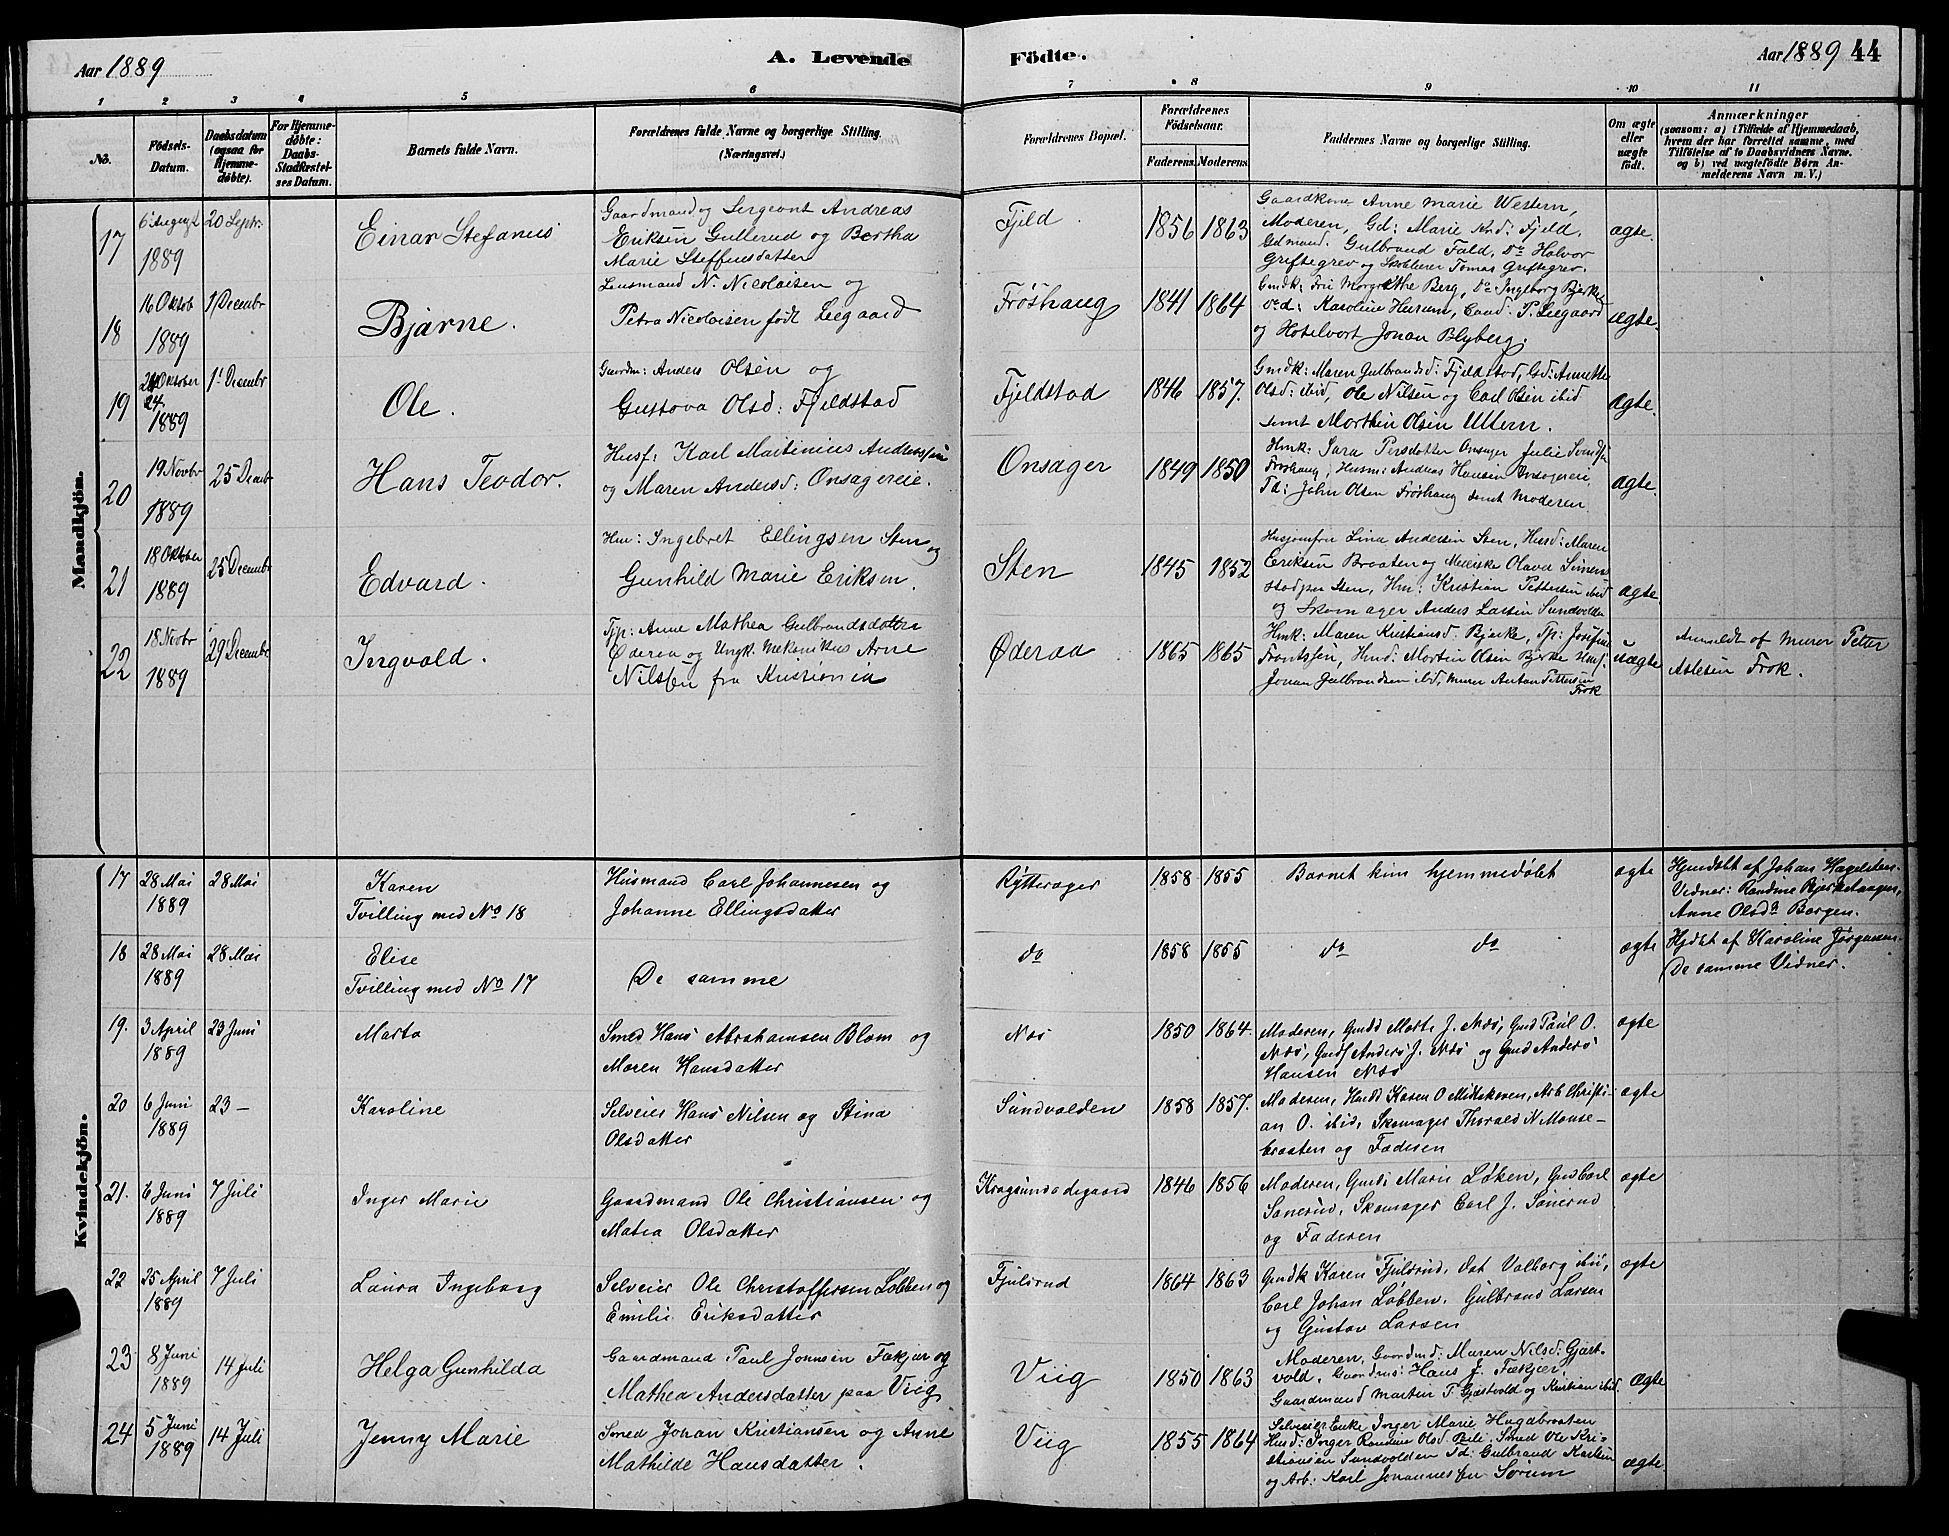 Aar 1889
A. Levende
Födte.
Aar 1889 44
1 2 3 4 5 6 7 8 9 10 11
No.
Födsels-
Datum.
Daabsdatum
(ogsaa for
Hjemme-
döbte).
For Hjemme-
döbte:
Daabs-
Stadfæstel-
ses Datum.
Barnets fulde Navn.
Forældrenes fulde Navne og borgerlige Stilling.
(Næringsvei.)
Forældrenes Bopæl.
Forældrenes
Födselsaar.
Faderens. Moderens.
Faddernes Navne og borgerlige Stilling.
Om ægte
eller
uægte
födt.
Anmærkninger
(saasom: a) i Tilfælde af Hjemmedaab,
hvem der har forrettet samme, med
Tilföielse af to Daabsvidners Navne.
og b) ved uægtefödte Börn An-
melderens Navn m. V.)
Mandkjön.
17
6 August
1889
20 Septr.
Einar Stefanus
Gaardmand og Sergeont Andreas
Eriksen Gullerud og Bertha
Marie Steffensdatter
Fjeld
1856 1863
Gaardkone Anne Marie Western,
Moderen, Gd: Marie Fjeld.
Gdmand. Gulbrand Fald. Do Halvor
Griftegrev og Tomas Griftegrev.
ægte.
18
16 Oktob
1889
1 Decembr
Bjarne.
Lensmand N. Nicolaisen og
Petra Nicolaisen født Leegaard
Frøshaug
1841 1864
Gmdk: Berg, Do Ingeborg Bjerke
Karoline Hurum, Cand. P. Leegaard
og Hotelvert Johan Blyberg.
ægte.
19
Oktober
24.
1889
1 Decembr
Ole.
Gaardm: Anders Olsen og
Gustava Olsd: Fjeldstad
Fjeldstad
1846 1857.
Gmdk: Maren Gulbrandsd: Fjeldstad, Gd: Annette
Olsd: ibid, Ole Nilsen og Carl Olsen ibid
samt Morthen Olsen Ultern.
ægte.
20
19 Novbr
1889
25 Decbr
Hans Teodor.
Husf: Karl Martinius Anderssen
og Maren Andersd: Onsagereie.
Onsager
1849 1850
Hmk: Sara Persdatter Onsager Julie
Frøshaug, Husm: Andreas Hansen Onsagereie,
Td: John Olsen Frøshaug samt Moderen
ægte.
21
18 Oktober
1889
25 Decembr
Edvard.
Hm: Ingebret Ellingsen Sten og
Gunhild Marie Eriksen.
Sten
1845 1852
Husjomfru Lina Andersen Sten, Husd: Maren
Eriksen Braaten og Olava Simens
Sten, Hm: Kristian Pettersen ibid
og Skomager Anders Larsen Sundvolden
ægte.
22
18 Novbr
1889
29 Decembr
Ingvald.
Tjp: Anne Mathea Gulbrandsdatter
Øderaa og Ungk. Mekanikus Arne
Nilssen fra Kristiania
Øderaa
1865 1865
Hmk: Maren Kristiansd. Bjerke, Tp: Josefine
Frantssen, Hmd: Martin Olsen Bjerke Husf.
Johan Gulbrandsen ibd, Murer Anton Pettersen
Frok
uægte
Anmeldt af murer Petter
Atlesen Frok.
Kvindekjön.
17
28 Mai
1889
28 Mai
Karen
Tvilling med No 18
Husmand Carl Johannesen og
Johanne Ellingsdatter
Rytterager
1858 1855
Barnet kun hjemmedøbt
ægte
Hjemdøbt af Johan Hagelsten.
Vidner: Randine Bjerkehaugen,
Anne Olsda Borgen.
18
28 Mai
1889
28 Mai
Elise
Tvilling med No 17
De samme
do
1858 1855
do do
ægte
Hjdøbt af Karoline Jørgensen.
De samme Vidner.
19.
3 April
1889
23 Juni
Marta
Smed Hans Abrahamsen Blom og
Maren Hansdatter
Næs
1850 1864.
Moderen, Gmdd Marte J. Næs, Gmd Paul O.
Næs, Gmds Anders J. Næs og Gmd Anders
Hansen Næs
ægte
20
6 Juni
1889
23 -
Karoline
Selveier Hans Nilsen og Stina
Olsdatter
Sundvolden
1858 1857.
Moderen, Husdd Karen O Midtskoven, Arb Christi-
an O. ibid, Skomager Thorvald N Monse-
braaten og Faderen
ægte
21.
6 Juni
1889
7 Juli
Inger Marie
Gaardmand Ole Christiansen og
Matea Olsdatter
Kragsundødegaard
1846 1856
Moderen, Gmds Marie Løken, Gmd Carl
Sønerud, Skomager Carl J. Sønerud
og Faderen
ægte
22
25 April
1889
7 Juli
Laura Ingeborg
Selveier Ole Christoffersen Løbben og
Emilie Eriksdatter
Fjulsrud
1864 1863
Gmdk Karen Fjulsrud, Valborg ibid,
Carl Johan Løbben, Gulbrand Larsen
og Gustav Larsen
ægte
23
8 Juni
1889
14 Juli
Helga Gunhilda
Gaardmand Paul Johnsen Fækjær og
Mathea Andersdatter paa Viig
Viig
1850 1863
Moderen, Gaardmd: Maren Nilsd: Gjæst-
vold, Gaardms: Hans J. Fækjær,
Gaardmand Martin P Gjæstvold og Kristian ibid.
ægte
24
5 Juni
1889
14 Juli
Jenny Marie
Smed Johan Kristiansen og Anne
Mathilde Hansdatter.
Viig
1855 1864
Selveier Enke Inger Marie Hugabraaten
Husd: Inger Randine Olsd Bili, Smed Ole Kri-
stiansen Sundvolden Td: Gulbrand Karlsen
og Arb: Karl Johannessen Sørum
ægte.